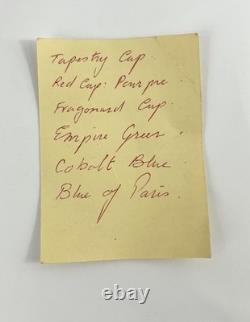 Tapestry Cup.
Red Cup: Pourpre
Fragonard Cup.
Empire Green
Cobalt Blue.
Blue of Paris.
ebay